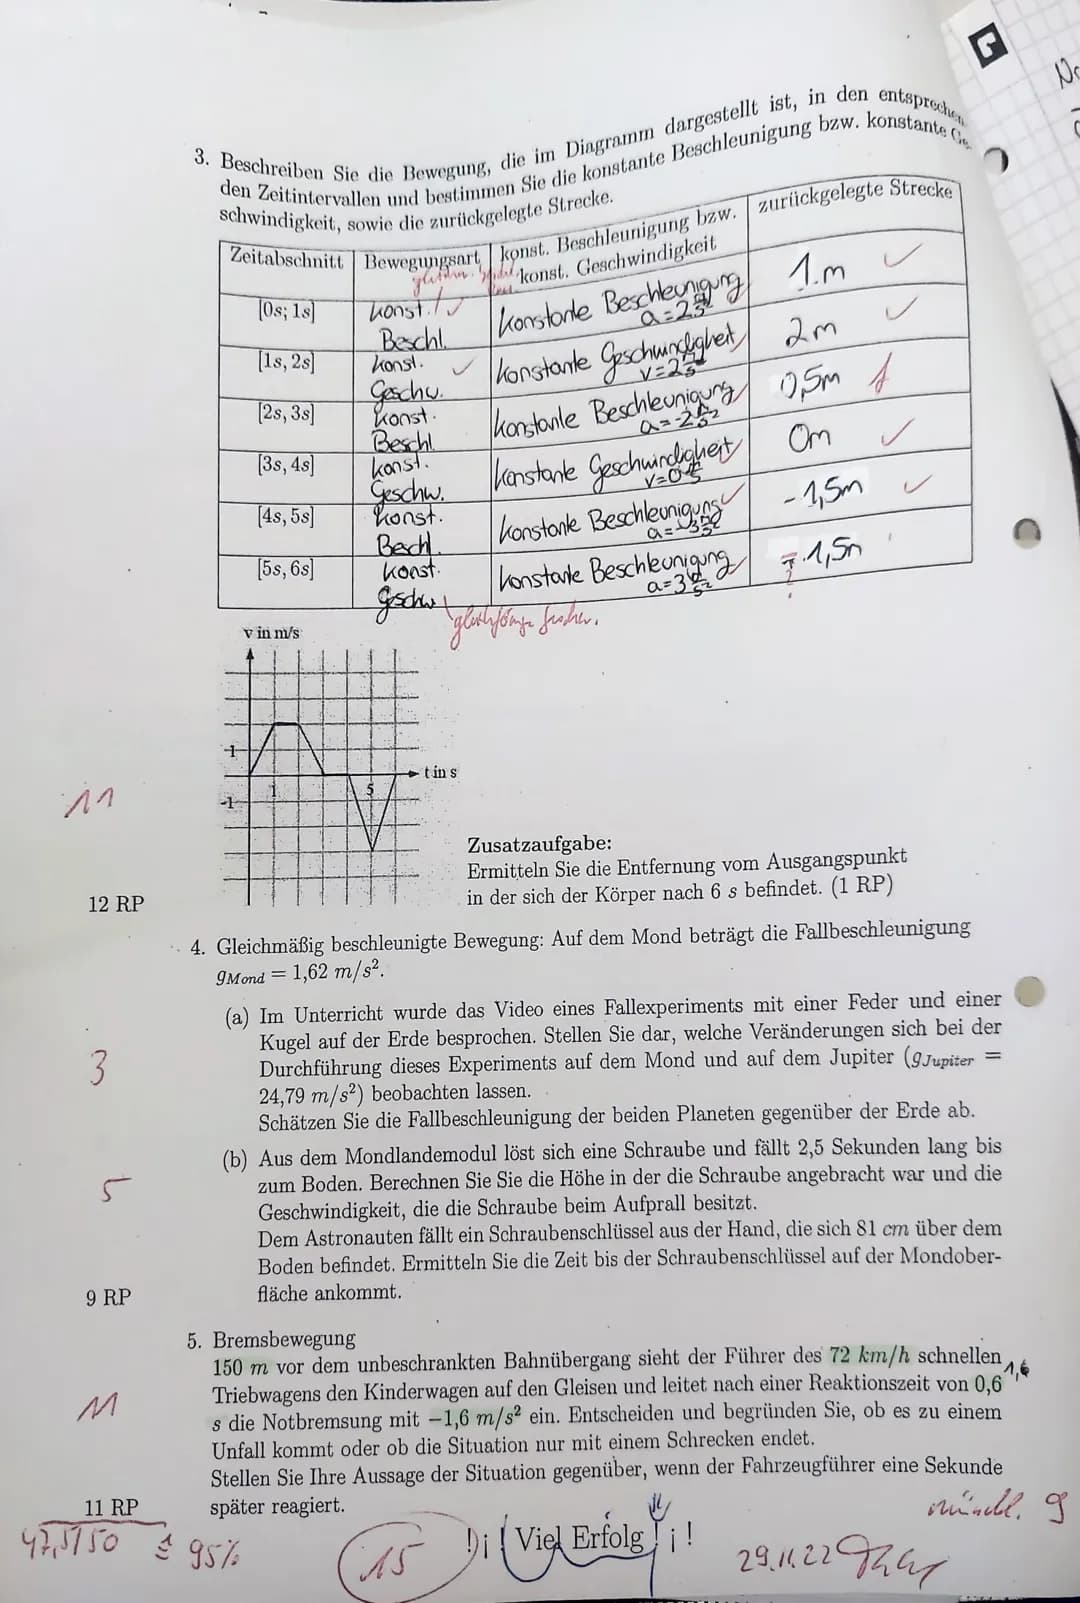 3. Beschreiben Sie die Bewegung, die im Diagramm dargestellt ist, in den entsprechen
den Zeitintervallen und bestimmen Sie die konstante Beschleunigung bzw. konstante Ge-
schwindigkeit, sowie die zurückgelegte Strecke.
Zeitabschnitt Bewegungsart konst. Beschleunigung bzw. konst. Geschwindigkeit zurückgelegte Strecke
[0s; 1s] konst. Beschl. konstante Beschleunigung a=2 m/s² 1m
[1s, 2s] konst. Geschw. konstante Geschwindigkeit v=2 m/s 2m
[2s, 3s] konst. Beschl. konstante Beschleunigung a=-2 m/s² 0,5m f
[3s, 4s] konst. Geschw. konstante Geschwindigkeit v=0 m/s 0m
[4s, 5s] konst. Beschl. konstante Beschleunigung a=-3 m/s² -1,5m
[5s, 6s] konst. Geschw konstante Beschleunigung a=3 m/s² -1,5m
?
v in m/s
1
t in s
1
5
-1
11
Zusatzaufgabe:
Ermitteln Sie die Entfernung vom Ausgangspunkt
in der sich der Körper nach 6 s befindet. (1 RP)
12 RP
4. Gleichmäßig beschleunigte Bewegung: Auf dem Mond beträgt die Fallbeschleunigung
gMond = 1,62 m/s².
(a) Im Unterricht wurde das Video eines Fallexperiments mit einer Feder und einer
Kugel auf der Erde besprochen. Stellen Sie dar, welche Veränderungen sich bei der
3 Durchführung dieses Experiments auf dem Mond und auf dem Jupiter (gJupiter =
24,79 m/s²) beobachten lassen.
Schätzen Sie die Fallbeschleunigung der beiden Planeten gegenüber der Erde ab.
(b) Aus dem Mondlandemodul löst sich eine Schraube und fällt 2,5 Sekunden lang bis
5 zum Boden. Berechnen Sie Sie die Höhe in der die Schraube angebracht war und die
Geschwindigkeit, die die Schraube beim Aufprall besitzt.
Dem Astronauten fällt ein Schraubenschlüssel aus der Hand, die sich 81 cm über dem
Boden befindet. Ermitteln Sie die Zeit bis der Schraubenschlüssel auf der Mondober-
9 RP fläche ankommt.
5. Bremsbewegung
150 m vor dem unbeschrankten Bahnübergang sieht der Führer des 72 km/h schnellen
11 Triebwagens den Kinderwagen auf den Gleisen und leitet nach einer Reaktionszeit von 0,6 1,6
s die Notbremsung mit −1,6 m/s² ein. Entscheiden und begründen Sie, ob es zu einem
Unfall kommt oder ob die Situation nur mit einem Schrecken endet.
Stellen Sie Ihre Aussage der Situation gegenüber, wenn der Fahrzeugführer eine Sekunde
11 RP später reagiert.
mündl. 9
47,5/50 ≙ 95%
15
!¡! Viel Erfolg !¡!
29.11.22